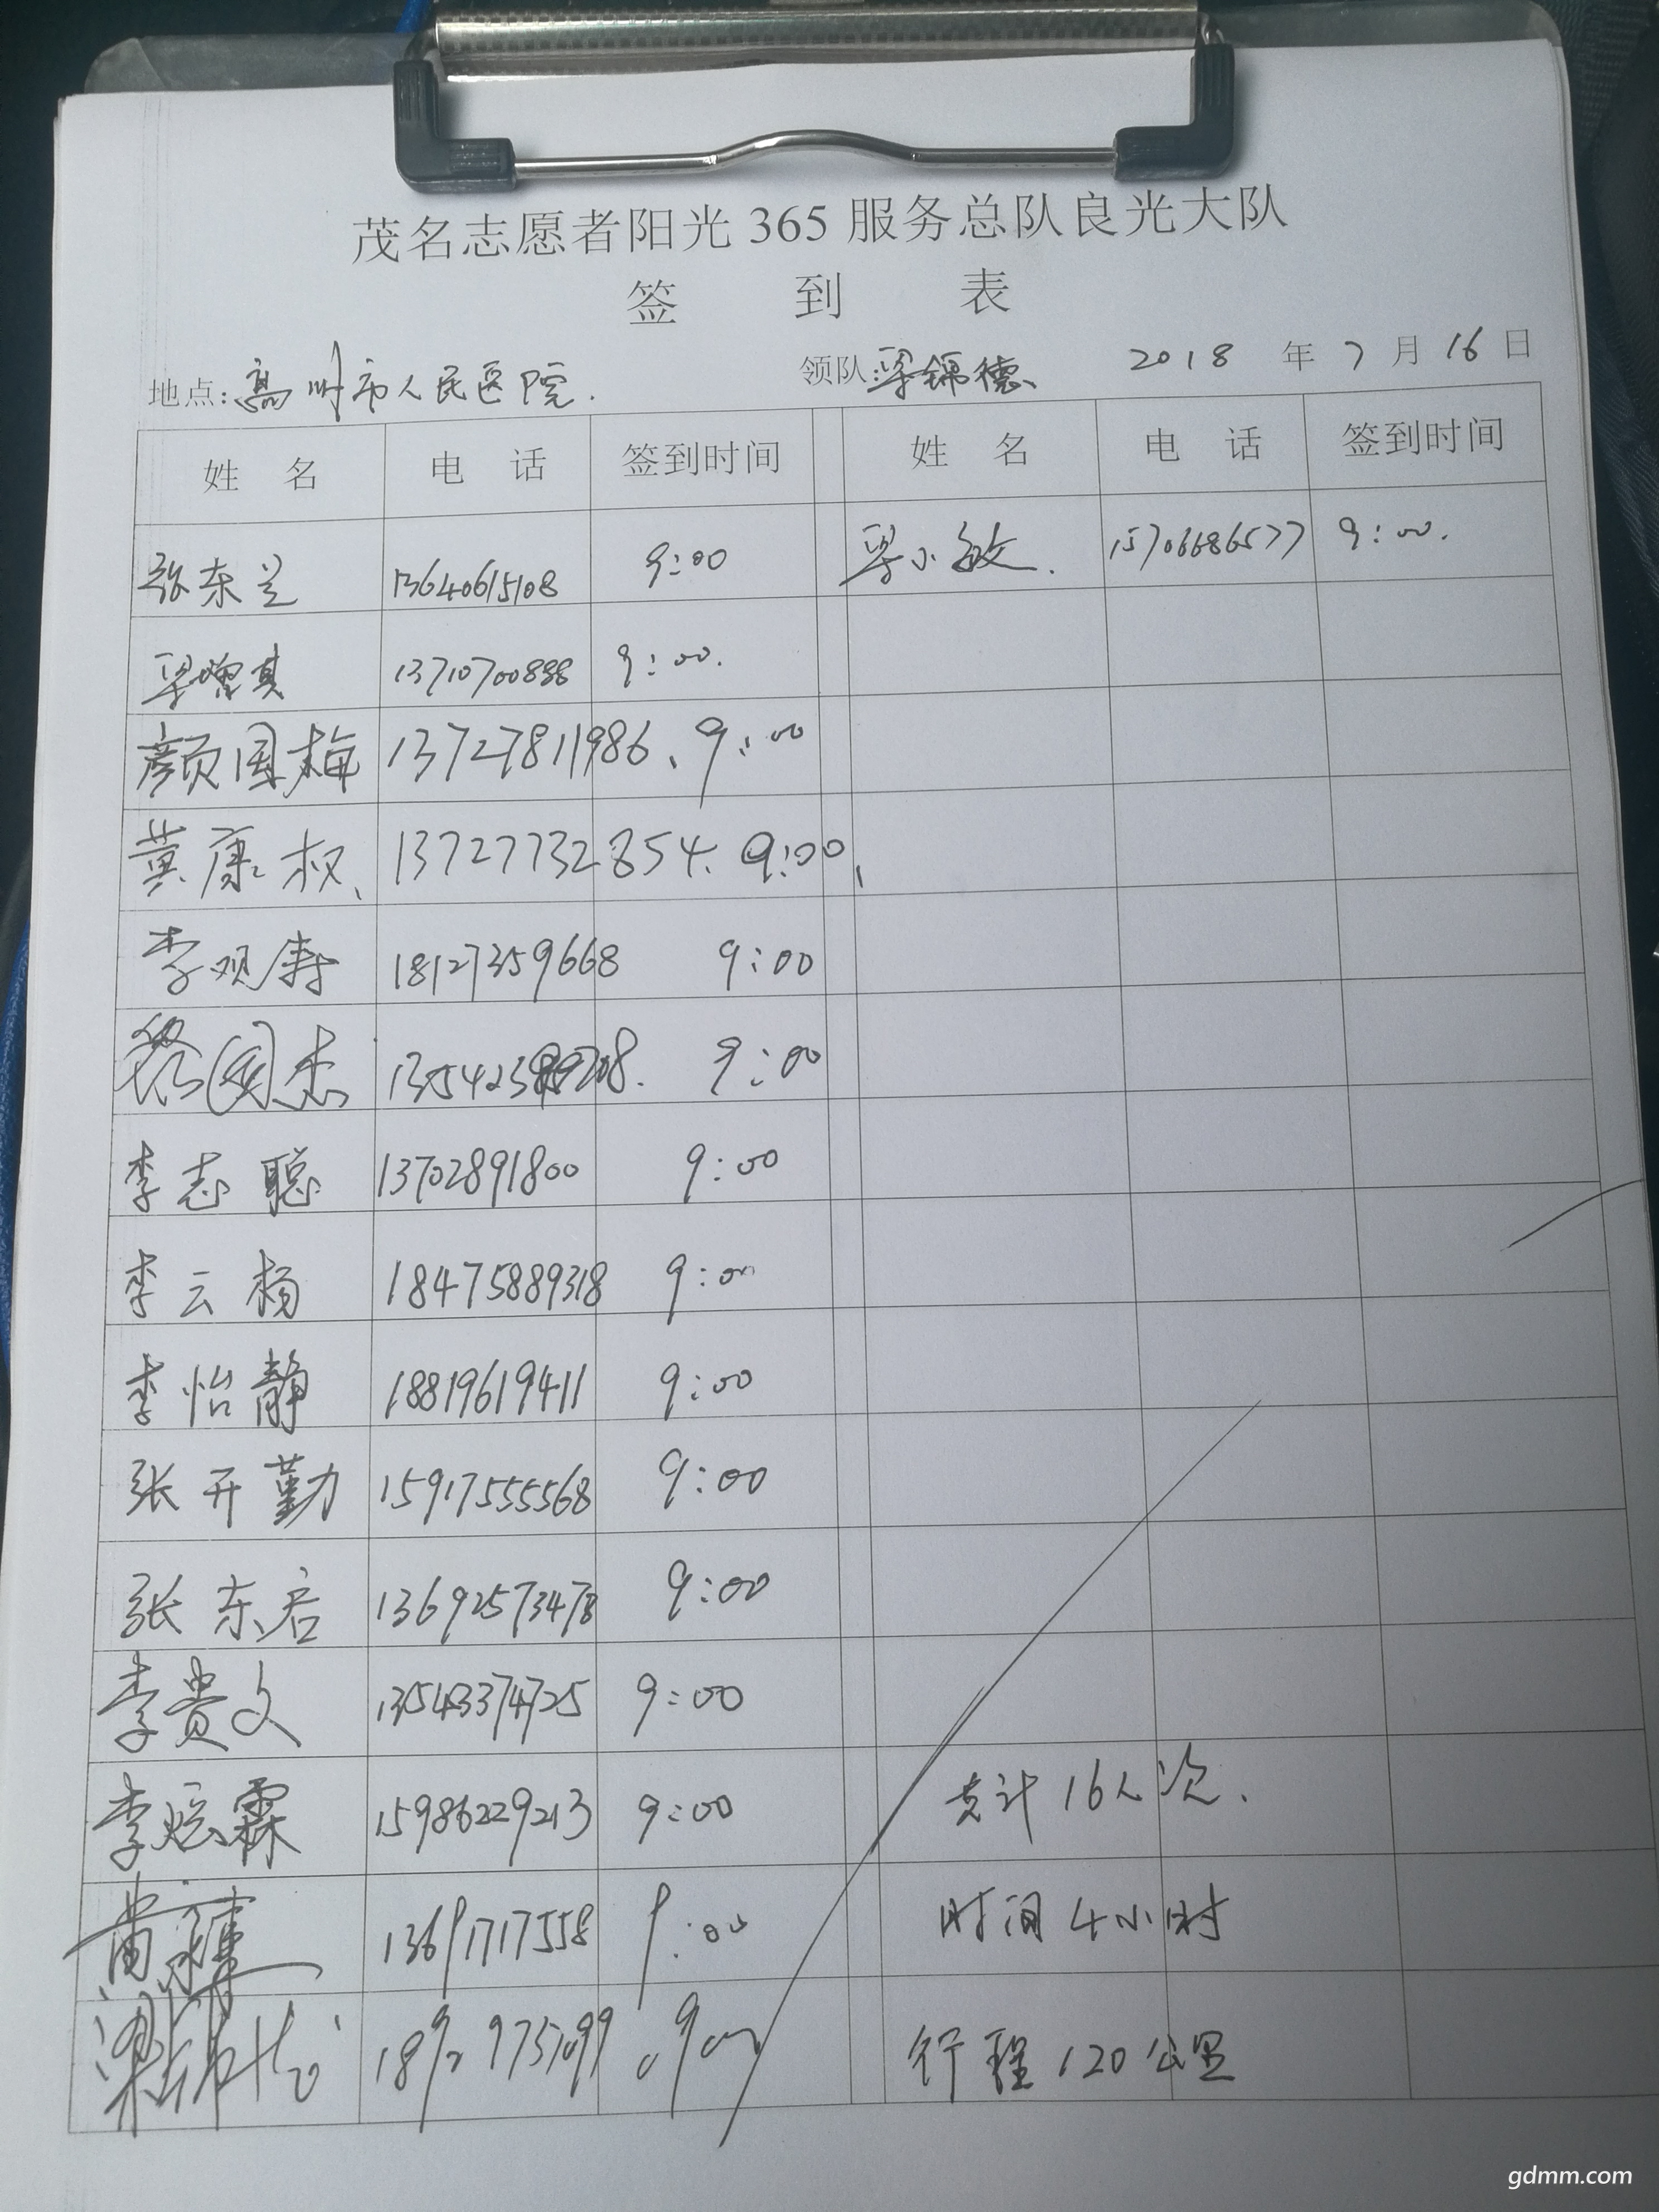 茂名志愿者阳光 365 服务总队良光大队
签 到 表
地点: 高州市人民医院. 领队: 梁锦德 2018 年 7 月 16 日
姓 名 电 话 签到时间 姓 名 电 话 签到时间
张东兰 13640615108 9:00 梁小敏. 15706686577 9:00.
梁増其 13710700888 9:00.
颜国梅 13727811986、9:00
黄康权、 13727732854. 9:00、
李观寿 18127359668 9:00
国杰 9:00
李志聪 13702891800 9:00
李云杨 18475889318 9:00
李怡静 18819619411 9:00
张开勤 15917555568 9:00
张东启 13692573478 9:00
李贵文 13543374725 9:00
李炫霖 15986229213 9:00 总计 16人次.
黄 13691717558 9:00 时间 4小时
梁锦德 9:00 行程 120公里
gdmm.com